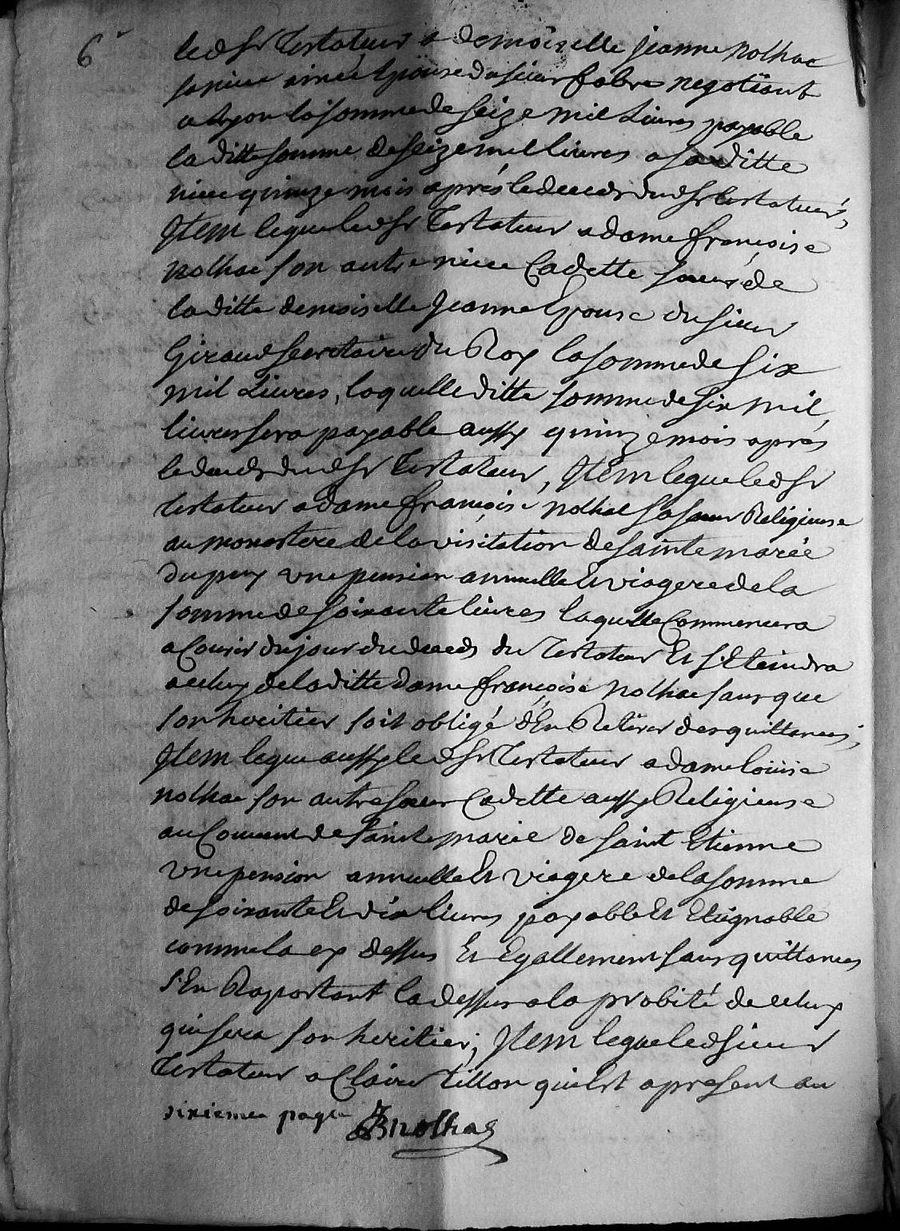 6e
ledsr Testateur a demoiselle jeanne nolhac
sa niece ainée Epouse du sieur fabre negotiant
a Lyon la somme de seize mil Livres payable
la ditte somme de seize mil livres a sa ditte
niece quinze mois après le deceds dud sr testateur,
Item legue led sr Testateur a dame françoise
nolhac son autre niece Cadette soeur de
la ditte demoiselle Jeanne Epouse du sieur
Giraud secretaire du Roy la somme de six
mil Livres, laquelle ditte somme de six mil
livres sera payable aussy quinze mois après
le deceds dud sr Testateur, Item legue led sr
testateur a dame françoise nolhac sa soeur Religieuse
au monastere de la visitation de sainte marée
du puy une pension annuelle et viagere de la
somme de soixante livres laquelle Commencera
a Courir du jour du deceds du Testateur Et s'Eteindra
a celuy de la ditte dame françoise nolhac sans que
son heritier soit obligé d'En Retirer des quittances;
Item legue aussy led sr Testateur a dame loüise
nolhac son autre soeur Cadette aussy Religieuse
au Couvent de sainte marie de saint Etienne
une pension annuelle Et viagere de la somme
de soixante Et dix livres payable Et Eteignable
comme la cy dessus Et Egallement sans quittances
s'En Raportant la dessus a la probité de celuy
qui sera son heritier; Item legue led sieur
Testateur a Claire tillon qui Est a present au
sixieme page JBnolhac